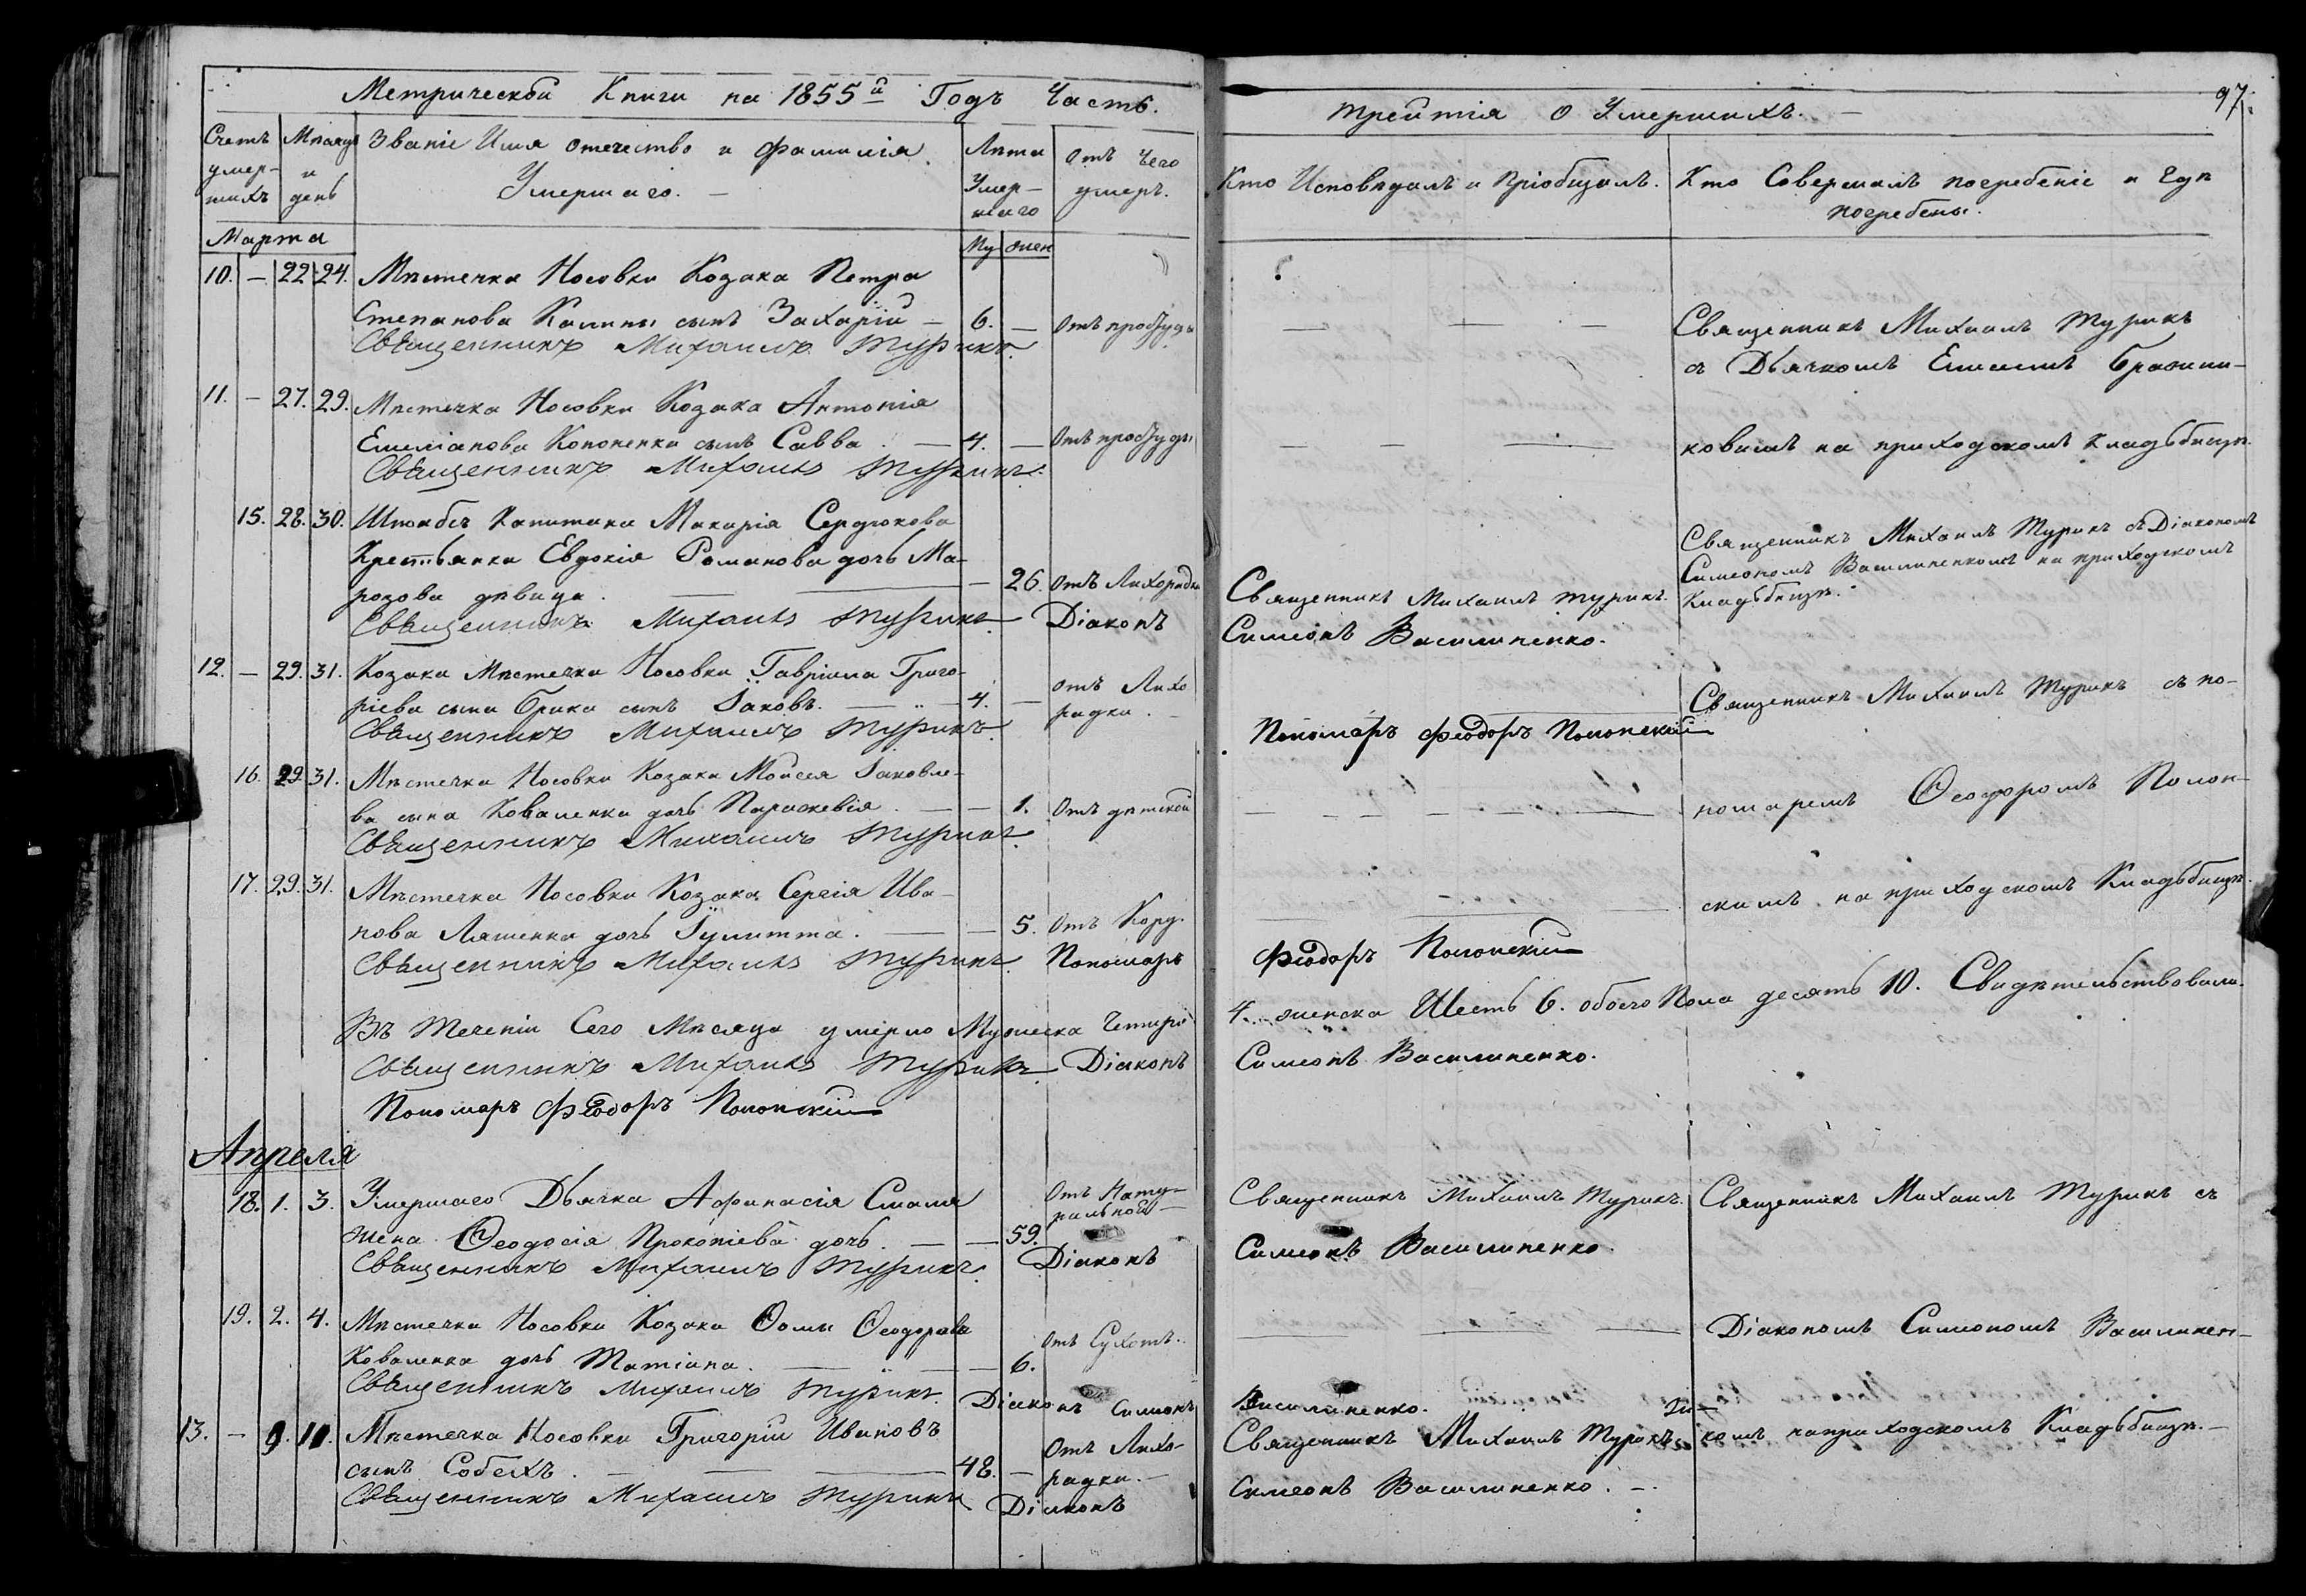 Метрической Книги на 1855й Годъ Часть
Счетъ умер- шихъ
Мѣсяцъ и день
Званіе Имя отечество и фамилія
Умершаго.
Лѣта Умер- шаго
Отъ чего умеръ.
Марта
Му жен
10. — 22 24. Мѣстечка Носовки Козака Петра
Степанова Калины сынъ Захарій — 6. —
Священникъ Михаилъ Турикъ.
11. — 27. 29. Мѣстечка Носовки Козака Антонія
Емеліанова Кононенка сынъ Савва. — 4. —
Священникъ Михаилъ Турикъ.
15. 28. 30. Штабсъ Капитана Макарія Сердюкова
Крестьянка Евдокія Романова дочь Ма-
розова дѣвица. — 26. Отъ Лихорадки
Священникъ Михаилъ Турикъ Діаконъ
12. — 29. 31. Козака Мѣстечка Носовки Гавріила Григо-
ріева сына Брика сынъ Іаковъ. — 4. — отъ Лихо
радки.
Священникъ Михаилъ Турикъ.
16. 29 31. Мѣстечка Носовки Козака Моисея Іаковле-
ва сына Коваленка дочь Параскевія. — — 1. Отъ дѣтской
Священникъ Михаилъ Турикъ.
17. 29. 31. Мѣстечка Носовки Козака Сергія Ива-
нова Ляшенка дочь Іулитта. — — 5. Отъ Кору.
Священникъ Михаилъ Турикъ. Пономарь
Въ Теченіи Сего Мѣсяца умерло Мужеска Четыри
Священникъ Михаилъ Турикъ. Діаконъ
Пономарь Феодоръ Полонскій
Апреля
18. 1. 3. Умершаго Дьячка Афанасія Смаля
жена Ѳеодосія Прокопіева дочь. — — 59. Отъ Нату-
ральной —
Священникъ Михаилъ Турикъ. Діаконъ
19. 2. 4. Мѣстечка Носовки Козака Ѳомы Ѳеодорова
Коваленка дочь Татіана. — — 6. отъ Сухотъ.
Священникъ Михаилъ Турикъ. Діаконъ Симеонъ
13. — 9. 11. Мѣстечка Носовки Григорій Ивановъ
сынъ Собехъ. — 48. — Отъ Лихо-
радки. —
Священникъ Михаилъ Турикъ Діаконъ
97.
трейтія о Умершихъ. —
Кто Исповѣдалъ и Пріобщалъ.
Кто Совершалъ погребеніе и Гдѣ погребены.
Священникъ Михаилъ Турикъ
съ Дьячкомъ
ковимъ на приходскомъ Кладьбищѣ.
Священникъ Михаилъ Турикъ съ Діакономъ
Симеономъ Василиненкомъ на приходскомъ
Кладьбищѣ.
Священникъ Михаилъ Турикъ.
Симеонъ Василиненко.
Священникъ Михаилъ Турикъ съ по-
Пономарь Феодоръ Полонскій
номаремъ Ѳеодоромъ Полон-
скимъ на приходскомъ Кладьбищѣ.
Феодоръ Полонскій
4. женска Шесть 6. обоего Пола десять 10. Свидѣтельствовали.
Симеонъ Василиненко.
Священникъ Михаилъ Турикъ. Священникъ Михаилъ Турикъ съ
Симеонъ Василиненко.
Діакономъ Симеономъ Василинен-
Василиненко.
Священникъ Михаилъ Турикъ комъ на приходскомъ Кладьбищѣ. —
Симеонъ Василиненко. —